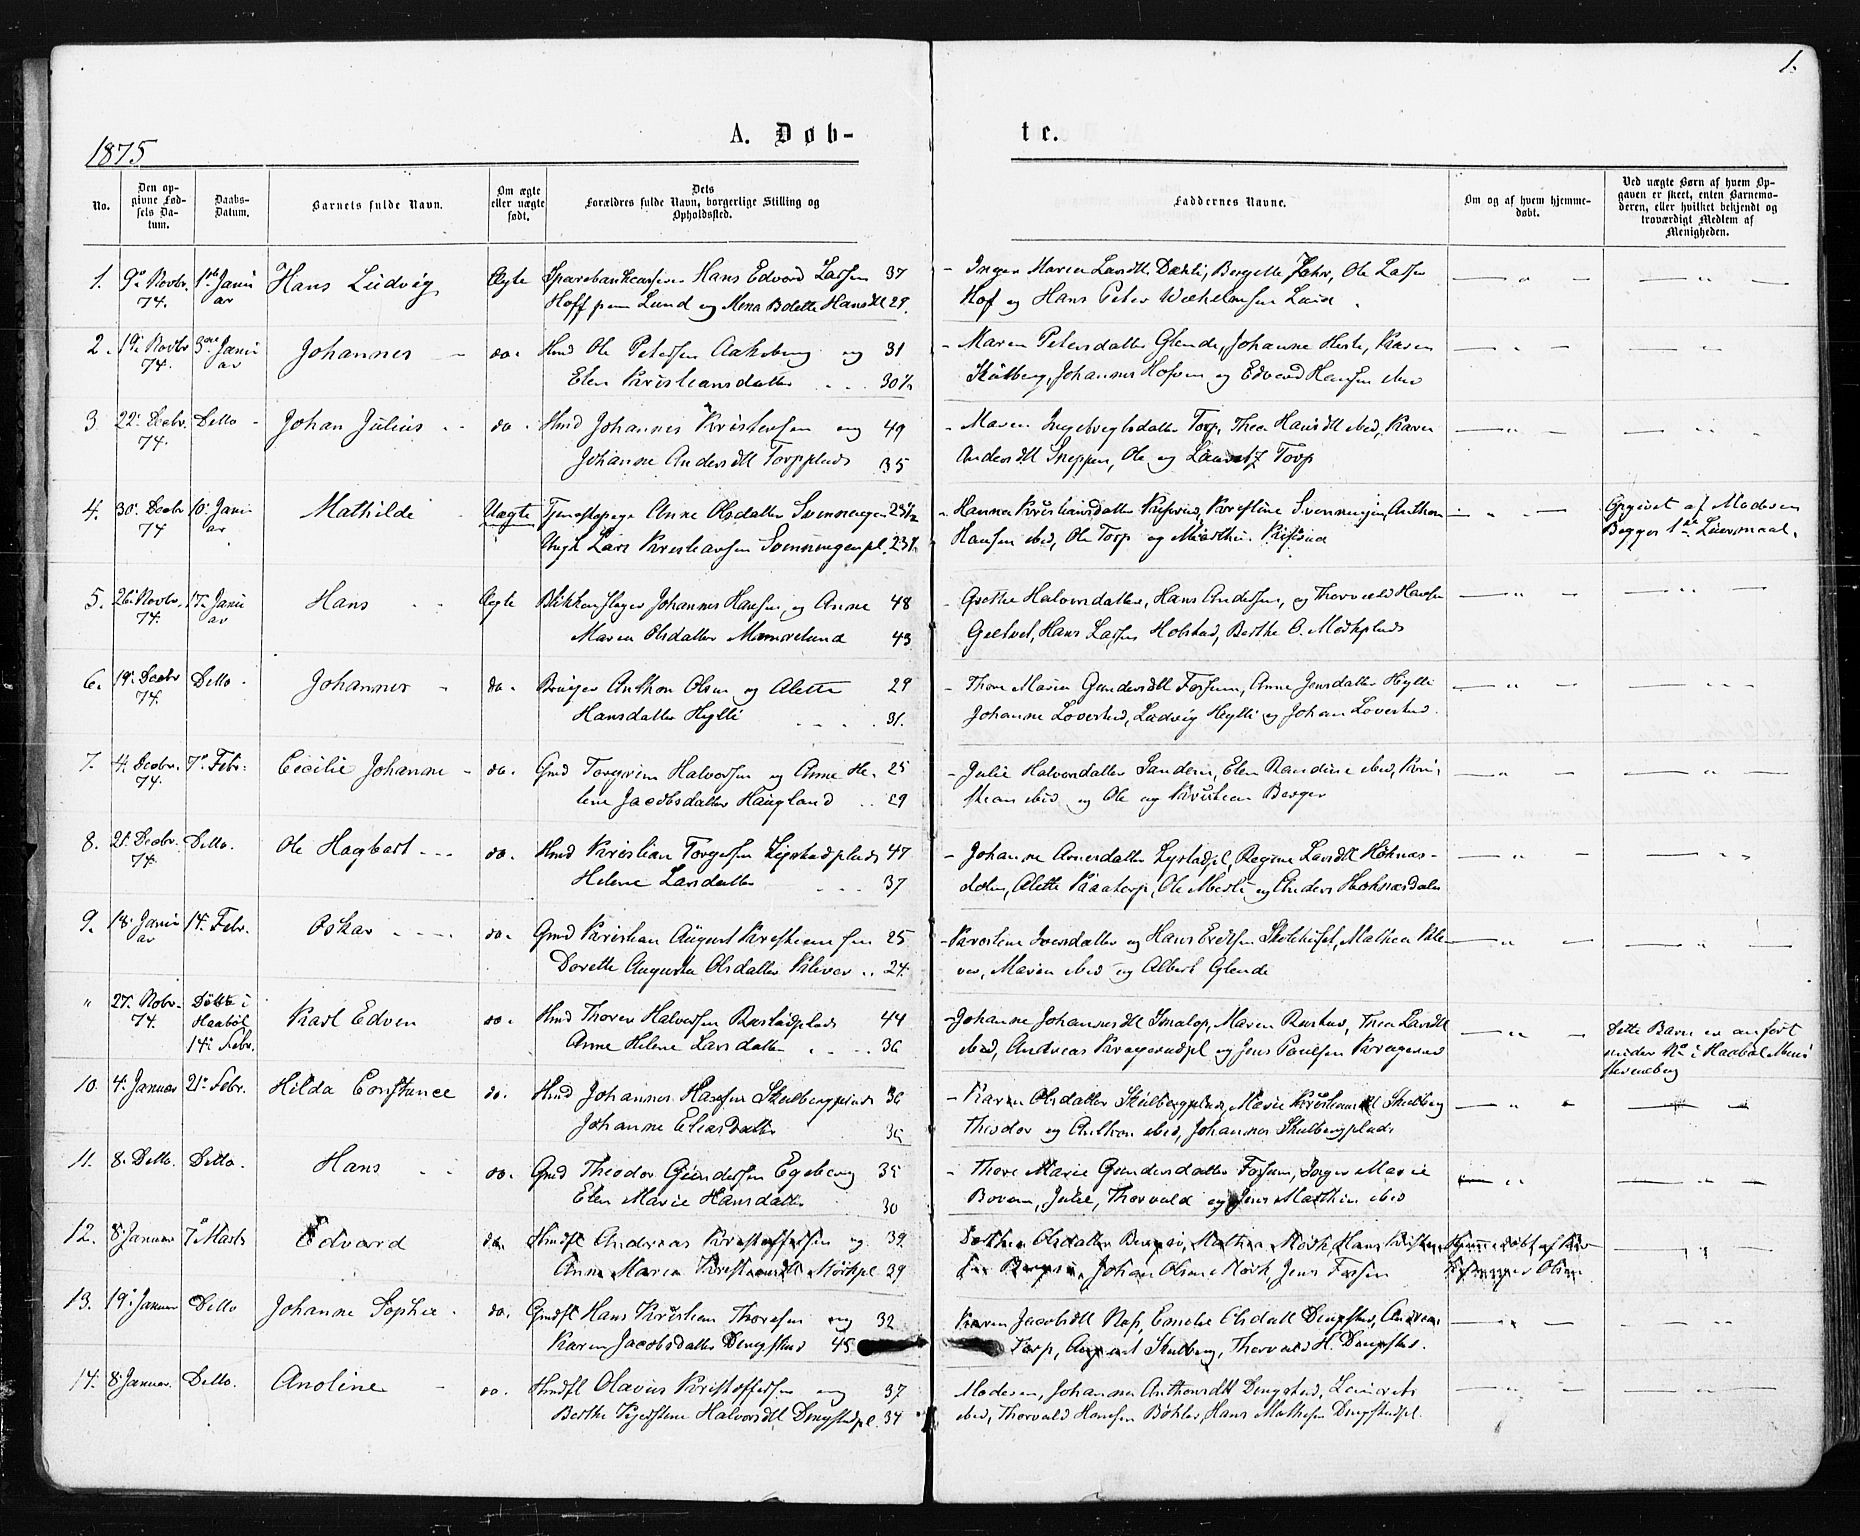 1.
1875
A. Døb-
te.
No.
Den op-
givne Fød-
sels Da-
tum.
Daabs-
Datum.
Barnets fulde Navn.
Om ægte
eller uægte
født.
Dets
Forældres fulde Navn, borgerlige Stilling og
Opholdssted.
Faddernes Navne.
Om og af hvem hjemme-
døbt.
Ved uægte Børn af hvem Op-
gaven er skeet, enten Barnemo-
deren, eller hvilket bekjendt og
troværdigt Medlem af
Menigheden.
1. 9e Novbr. 74. 1ste Janu ar Hans Ludvig Ægte Sparebankcasserer Hans Edvard Lassen 37
Hoff paa Lund og Mena Bolette Hansdt 29.
Inger Maren Larsdt Dæhli, Bergitte Jahr, Ole Lassen
Hof og Hans Peter Lund
2. 19e Novbr 74. 3die Janu ar Johannes do. Hmd Ole Petersen Aakeberg og 31
Elen Kristiansdatter 30½
Maren Petersdatter Glende, Johanne Karen
Skulberg, Johannes og Edvard Hansen ibid
3. 22. Decbr. 74. Ditto Johan Julius do. Hmd Johannes Kristensen og 49
Johanne Andersdt Torpplads 35
Maren Torp, Thea Hansdt ibid, Karen
Andersdt Sneppen, Ole og Lauritz Torp
4. 30. Decbr 74 10. Janu ar Mathilde Uægte Tjenestepige Anne Olsdatter Svennengen 23½
Ungk Lars Kristiansen Svennengenpl. 23½
Hanna Kristiansdatter Kristine Svennengen, Anthon
Hansen ibid, Ole Torp og
Opgivet af Moderen
Begges 1ste Leiermaal.
5. 26. Novbr. 74. 17. Janu ar Hans Ægte Blikkenslager Johannes Hansen og Anne 48
Maren Olsdatter Momarklund 43
Grethe Halvorsdatter, Hans Andersen, og Thorvald Hansen
Hans Lassen Holstad, Berthe O. Mørkplads
6. 19. Decbr 74. Ditto Johannes do. Bruger Anthon Olsen og Alette 29
Hansdatter Hylli 31.
Thore Maria Gundersdt Fossum, Anne Jensdatter Hylli
Johanne Lovestad, Ludvig Hylli og Johan Lovestad.
7. 4. Decbr. 74 7. Febr. Cecilie Johanne do. Gmd Torgrim Halvorsen og Anne He- 25
lene Jacobsdatter Haugland 29
Julie Halvorsdatter Sanderen, Elen Randine ibid, Kri-
stian ibid og Ole og Kristian Berger
8. 21. Decbr. 74. Ditto. Ole Hagbart do. Hmd Kristian Torgersen Ligstadplads 47
Helene Larsdatter 37
Johanne Arnesdatter Lystadpl, Regine Larsdt Høknes-
dalen, Alette Kaatorp, Ole Mosli og Anders Høknesdalen
9. 18. Janu ar 14. Febr. Oskar do. Gmd Kristian August Kristiansen 25
Dorette Augusta Olsdatter Klever 24.
Kirstine Iversdatter og Hans Skolehuset, Mathea Kle-
ver, Maren ibid og Albert Glende
" 27. Nobr. 74. Døbte i Haabøl 14. Febr. Karl Edven do. Hmd Thoren Halvorsen Rustadplads 44
Anne Helene Larsdatter 36
Johanne Johannesdt Smalop, Maren Rustad, Thea Larsdt
ibid, Andreas Kragerudpl og Jens Paulsen Kragerud
Dette Barn er anført
under No i Haabøl
10. 4. Januar 21. Febr. Hilda Constance do. Hmd Johannes Hansen Skulbergplads 36
Johanne Eliasdatter
Karen Olsdatter Skulbergplads, Marie Kristiansdt Skulberg
Theodor og Anthon ibid, Johannes Skulbergplads
11. 8. Ditto. Ditto. Hans do. Gmd Theodor Gundersen Egeberg 35
Elen Marie Hansdatter 30
Thore Marie Gundersdatter Fossum, Inger Marie
Julie, Thorvald og Jens Mathias ibid
12. 8. Januar 7. Marts Edvard do. Hmdfl Andreas Kristoffersen og 39.
Anne Maria Kristiansdt Mørkpl 29
Olsdatter Mathea Mørk, Hans Kristian
Johan Olsen Mørk, Jens
Hjemmedøbt af
Olsen
13. 19. Januar Ditto Johanne Sophie do. Gmdfl Hans Kristian Thoresen og 32
Karen Jacobsdatter Dengstad 45
Karen Jacobsdt Olsdatt Dengstad, Andreas
Torp, August Skulberg, Thorvald H. Dengstad.
14. 8. Januar. Ditto. Anoline do. Hmdfl Olavus Kristoffersen og 37
Berthe Halvorsdt Dengstadpl 34
Moderen, Johanne Anthonsdt Dengstad,
ibid, Thorvald Hansen Bøhler, Hans Mathisen Dengstadpl.